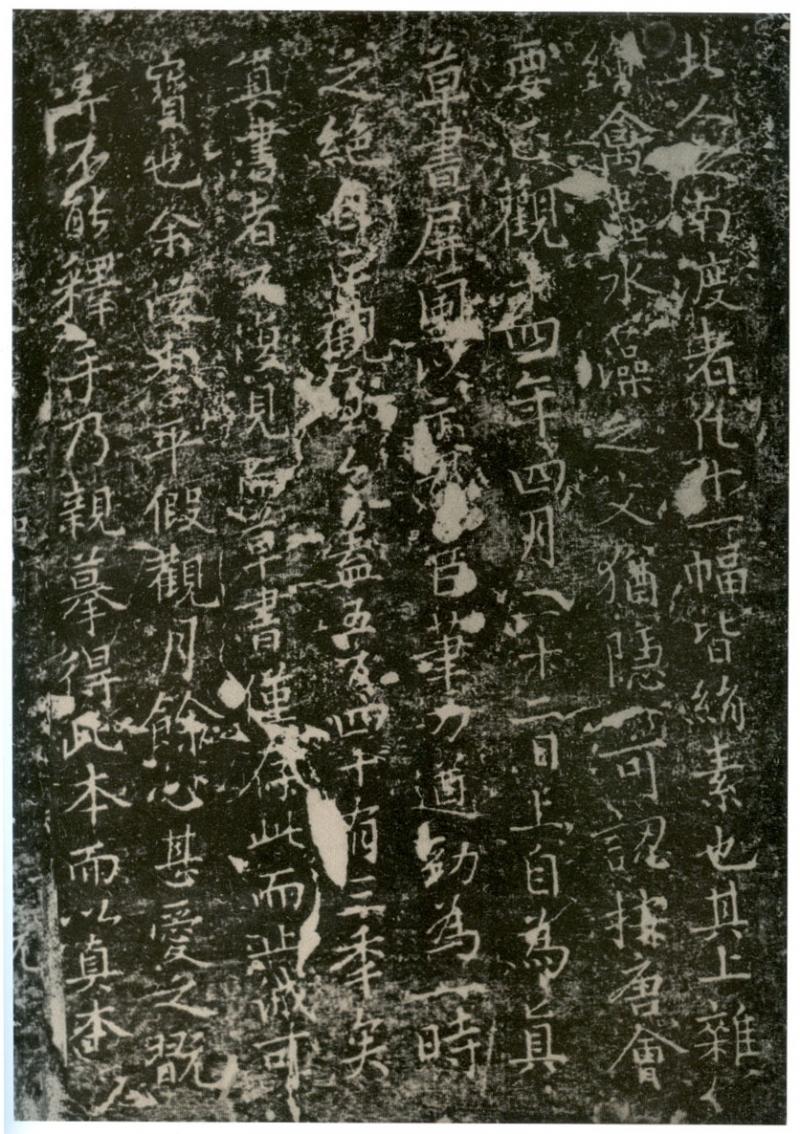 南度者凡十一幅皆絹素也其上雜
繪禽蟲水藻之文猶隱可認按唐會
要貞觀十四年四月二十二日上自為真
草書屏風以示群臣筆力遒勁為一時
之絕自貞觀至今蓋五百四十有三秊矣
真書者不復見而草書僅存此而止誠可
寶也余從平假觀月餘心甚愛之翫
弄不能釋手乃親摹得此本而以真本